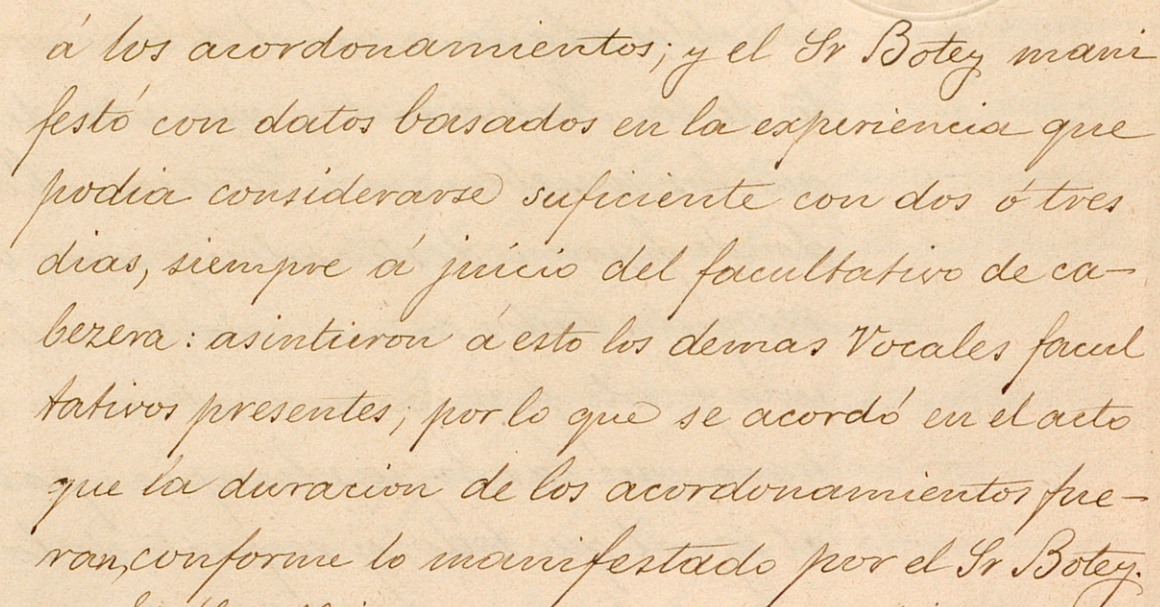 á los acordonamientos; y el Sr Botey mani
festó con datos basados en la experiencia que
podia considerarse suficiente con dos ó tres
dias, siempre á juicio del facultativo de ca-
bezera: asintieron á esto los demas Vocales facul
tativos presentes; por lo que se acordó en el acto
que la duracion de los acordonamientos fue-
ran, conforme lo manifestado por el Sr Botey.